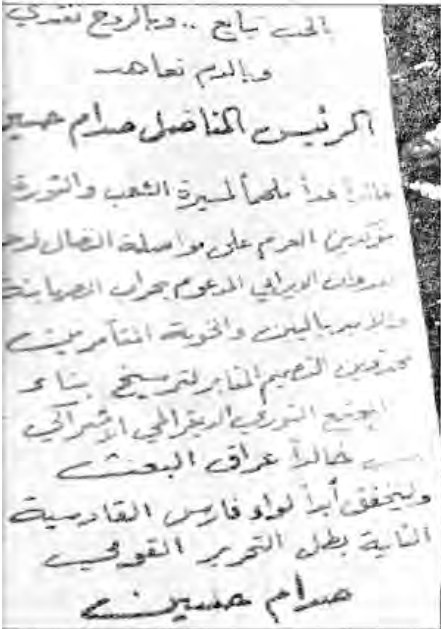 بالحب نبايع .. وبالروح نفتدي
وبالدم نعاهد
الرئيس المناضل صدام حسين
قائداً فذاً ملهماً لمسيرة الشعب والثورة
مؤكدين العزم على مواصلة النضال لدحر
العدوان الايراني المدعوم بحراب الصهاينة
والامبرياليين والخونة المتآمرين
مجددين التصميم المثابر لترسيخ بناء
المجتمع الثوري الديمقراطي الاشتراكي
خالداً عراق البعث
وليخفق أبداً لواء فارس القادسية
الثانية بطل التحرير القومي
صدام حسين